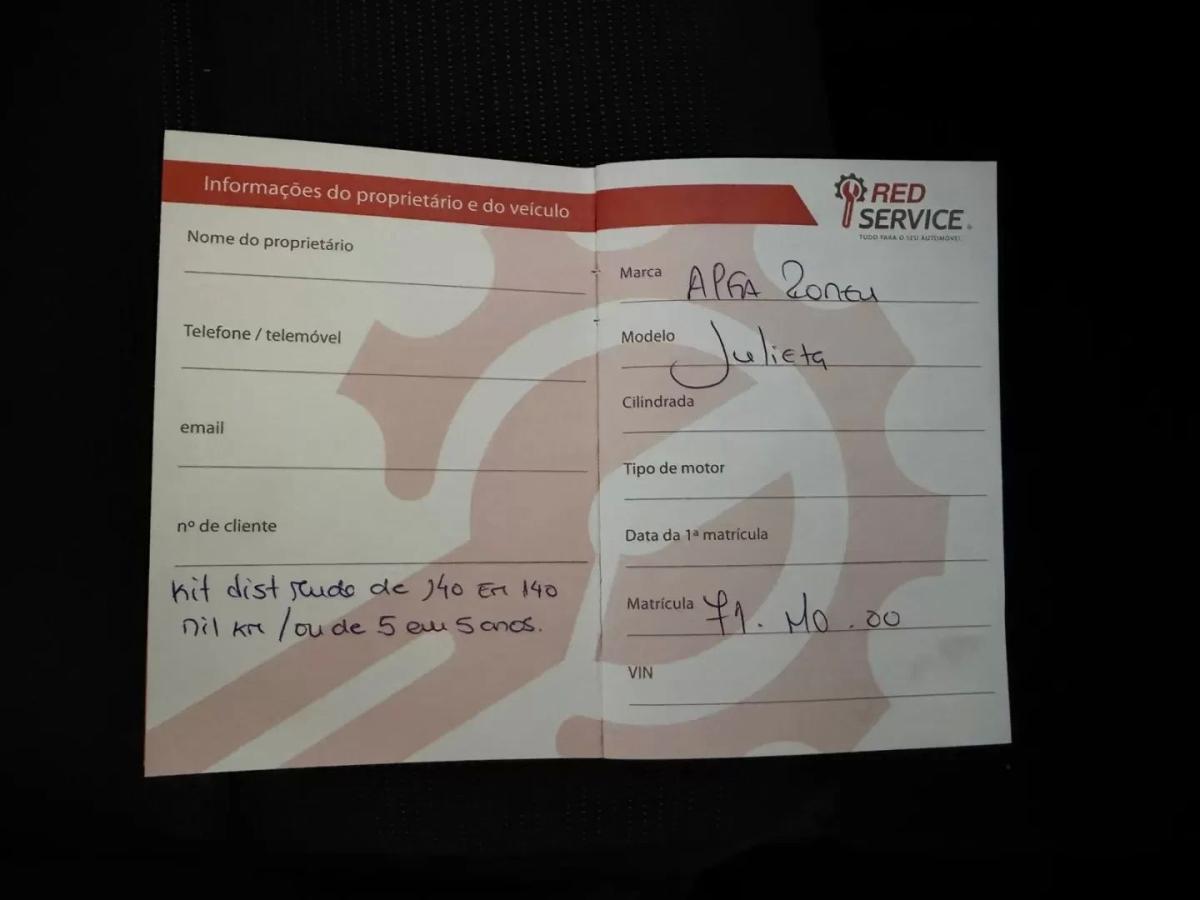 Informações do proprietário e do veículo
Nome do proprietário
Telefone / telemóvel
email
nº de cliente
Kit dist de 140 Em 140
mil km / ou de 5 em 5 anos.
RED
SERVICE
TUDO PARA O SEU AUTOMÓVEL
Marca Alfa Romeu
Modelo Julieta
Cilindrada
Tipo de motor
Data da 1ª matrícula
Matrícula 71. MO. 00
VIN